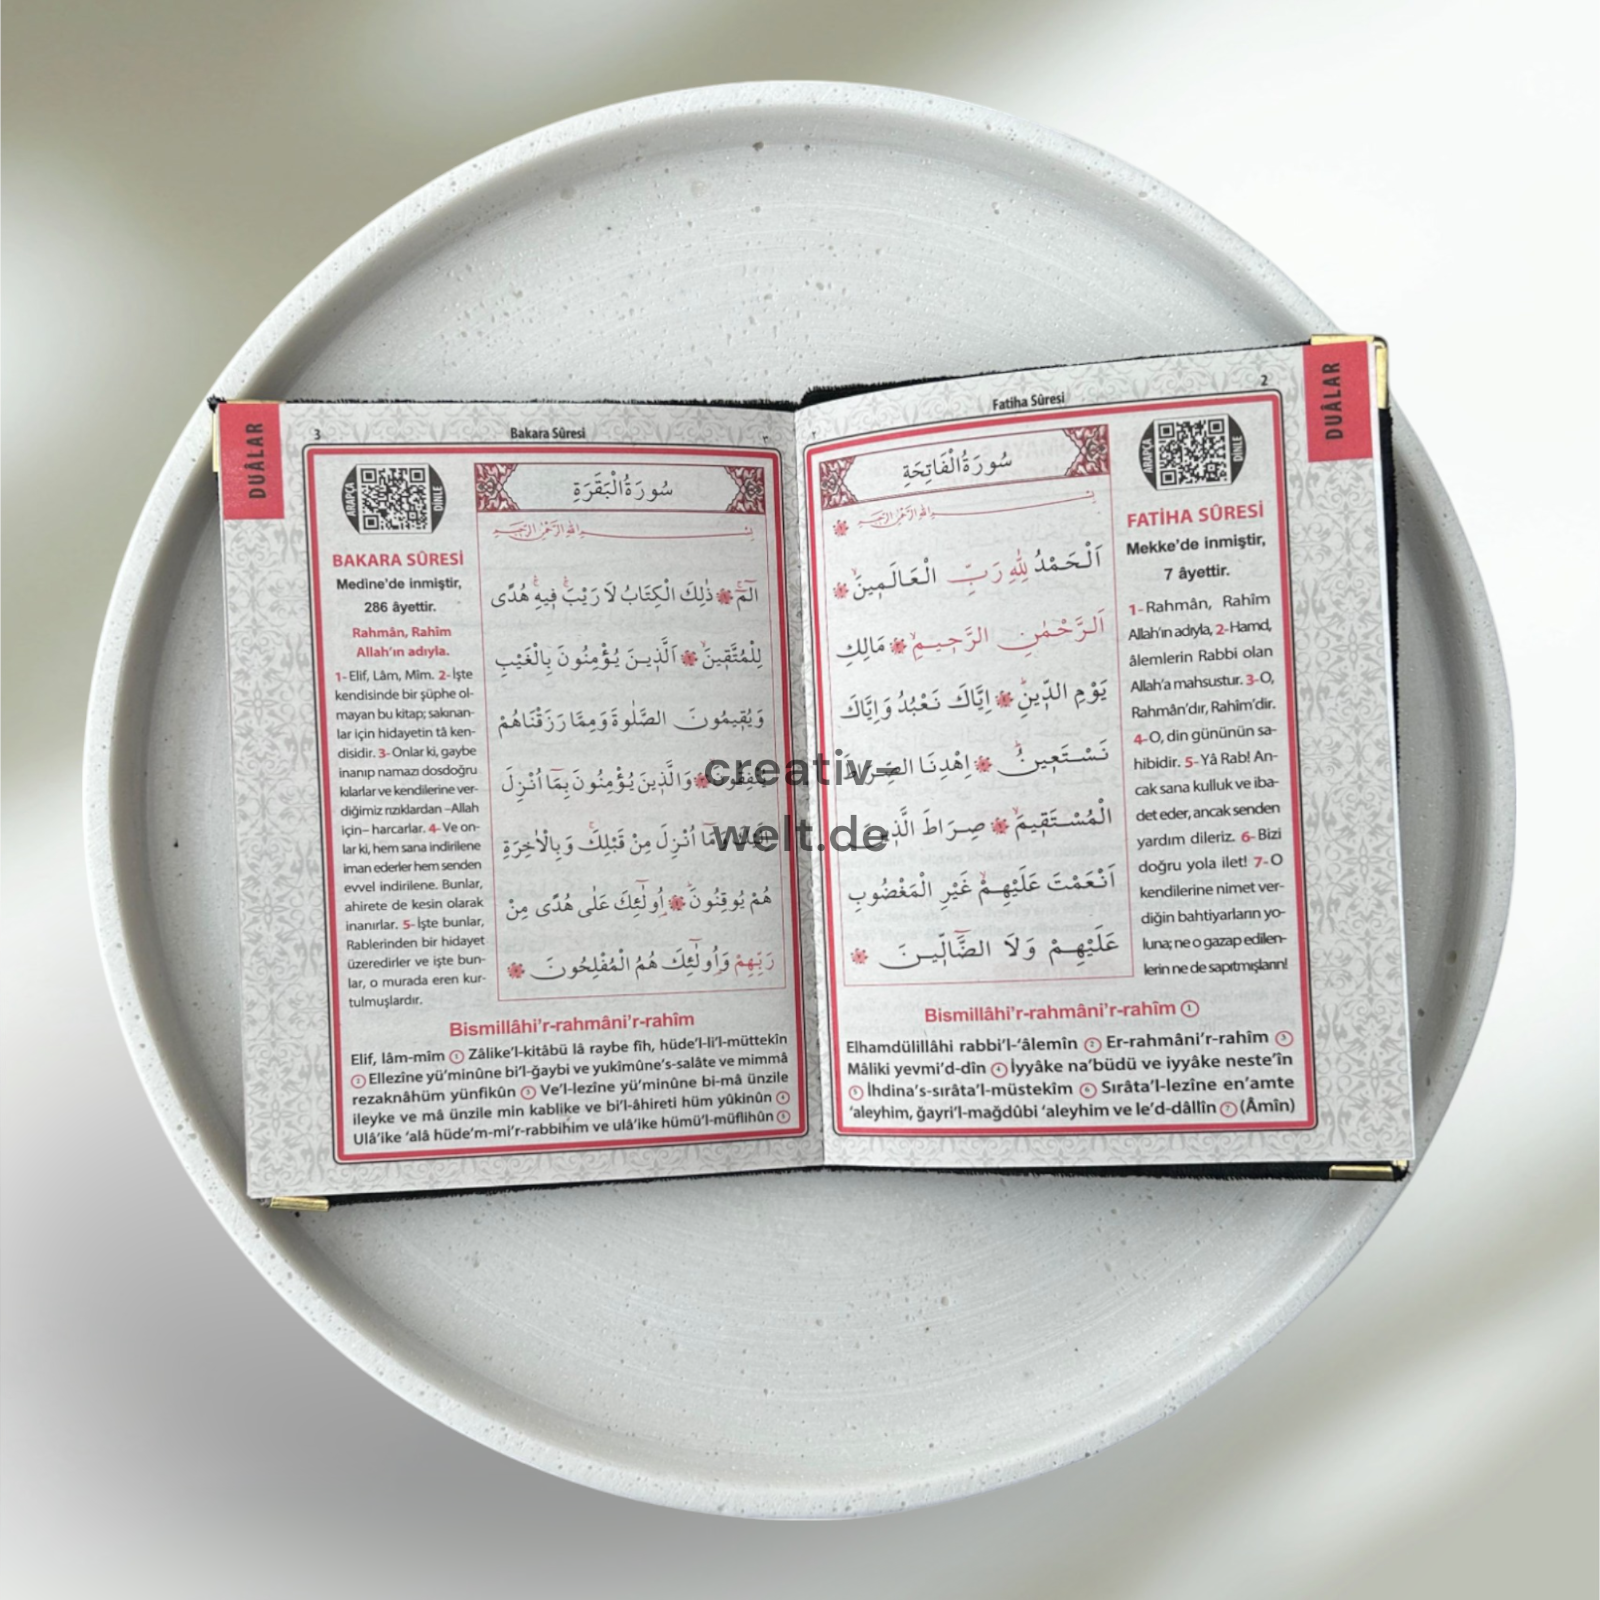 DUÂLAR
2
Fatiha Sûresi
٢
ARAPÇA
DİNLE
سُورَةُ الْفَاتِحَةِ
بِسْمِ اللهِ الرَّحْمٰنِ الرَّحِيمِ
اَلْحَمْدُ لِلّٰهِ رَبِّ الْعَالَمِينَۙ
اَلرَّحْمٰنِ الرَّحِيمِۙ مَالِكِ
يَوْمِ الدِّينِۜ اِيَّاكَ نَعْبُدُ وَاِيَّاكَ
نَسْتَعِينُۜ اِهْدِنَا الصِّرَاطَ
الْمُسْتَقِيمَۙ صِرَاطَ الَّذِينَ
اَنْعَمْتَ عَلَيْهِمْۙ غَيْرِ الْمَغْضُوبِ
عَلَيْهِمْ وَلَا الضَّٓالِّينَ
FATİHA SÛRESİ
Mekke’de inmiştir,
7 âyettir.
1- Rahmân, Rahîm
Allah’ın adıyla, 2- Hamd,
âlemlerin Rabbi olan
Allah’a mahsustur. 3- O,
Rahmân’dır, Rahîm’dir.
4- O, din gününün sa-
hibidir. 5- Yâ Rab! An-
cak sana kulluk ve iba-
det eder, ancak senden
yardım dileriz. 6- Bizi
doğru yola ilet! 7- O
kendilerine nimet ver-
diğin bahtiyarların yo-
luna; ne o gazap edilen-
lerin ne de sapıtmışların!
Bismillâhi’r-rahmâni’r-rahîm 1
Elhamdülillâhi rabbi’l-‘âlemîn 2 Er-rahmâni’r-rahîm 3
Mâliki yevmi’d-dîn 4 İyyâke na’büdü ve iyyâke neste’în
5 İhdina’s-sırâta’l-müstekîm 6 Sırâta’l-lezîne en’amte
‘aleyhim, ğayri’l-mağdûbi ‘aleyhim ve le’d-dâllîn 7 (Âmîn)
DUÂLAR
3
Bakara Sûresi
٣
ARAPÇA
DİNLE
سُورَةُ الْبَقَرَةِ
بِسْمِ اللهِ الرَّحْمٰنِ الرَّحِيمِ
الٓمٓۚ ذٰلِكَ الْكِتَابُ لَا رَيْبَۚ فِيهِۚ هُدًى
لِلْمُتَّقِينَۙ اَلَّذِينَ يُؤْمِنُونَ بِالْغَيْبِ
وَيُقِيمُونَ الصَّلٰوةَ وَمِمَّا رَزَقْنَاهُمْ
يُنْفِقُونَۙ وَالَّذِينَ يُؤْمِنُونَ بِمَٓا اُنْزِلَ
اِلَيْكَ وَمَٓا اُنْزِلَ مِنْ قَبْلِكَۚ وَبِالْاٰخِرَةِ
هُمْ يُوقِنُونَۜ اُو۬لٰٓئِكَ عَلٰى هُدًى مِنْ
رَبِّهِمْ وَاُو۬لٰٓئِكَ هُمُ الْمُفْلِحُونَ
BAKARA SÛRESİ
Medîne’de inmiştir,
286 âyettir.
Rahmân, Rahîm
Allah’ın adıyla.
1- Elif, Lâm, Mîm. 2- İşte
kendisinde bir şüphe ol-
mayan bu kitap; sakınan-
lar için hidayetin tâ ken-
disidir. 3- Onlar ki, gaybe
inanıp namazı dosdoğru
kılarlar ve kendilerine ver-
diğimiz rızıklardan –Allah
için– harcarlar. 4- Ve on-
lar ki, hem sana indirilene
iman ederler hem senden
evvel indirilene. Bunlar,
ahirete de kesin olarak
inanırlar. 5- İşte bunlar,
Rablerinden bir hidayet
üzeredirler ve işte bun-
lar, o murada eren kur-
tulmuşlardır.
Bismillâhi’r-rahmâni’r-rahîm
Elif, lâm-mîm 1 Zâlike’l-kitâbü lâ raybe fîh, hüde’l-li’l-müttekîn
2 Ellezîne yü’minûne bi’l-ğaybi ve yukîmûne’s-salâte ve mimmâ
rezaknâhüm yünfikûn 3 Ve’l-lezîne yü’minûne bi-mâ ünzile
ileyke ve mâ ünzile min kablike ve bi’l-âhireti hüm yûkinûn 4
Ulâ’ike ‘alâ hüde’m-mi’r-rabbihim ve ulâ’ike hümü’l-müflihûn 5
creativ-
welt.de